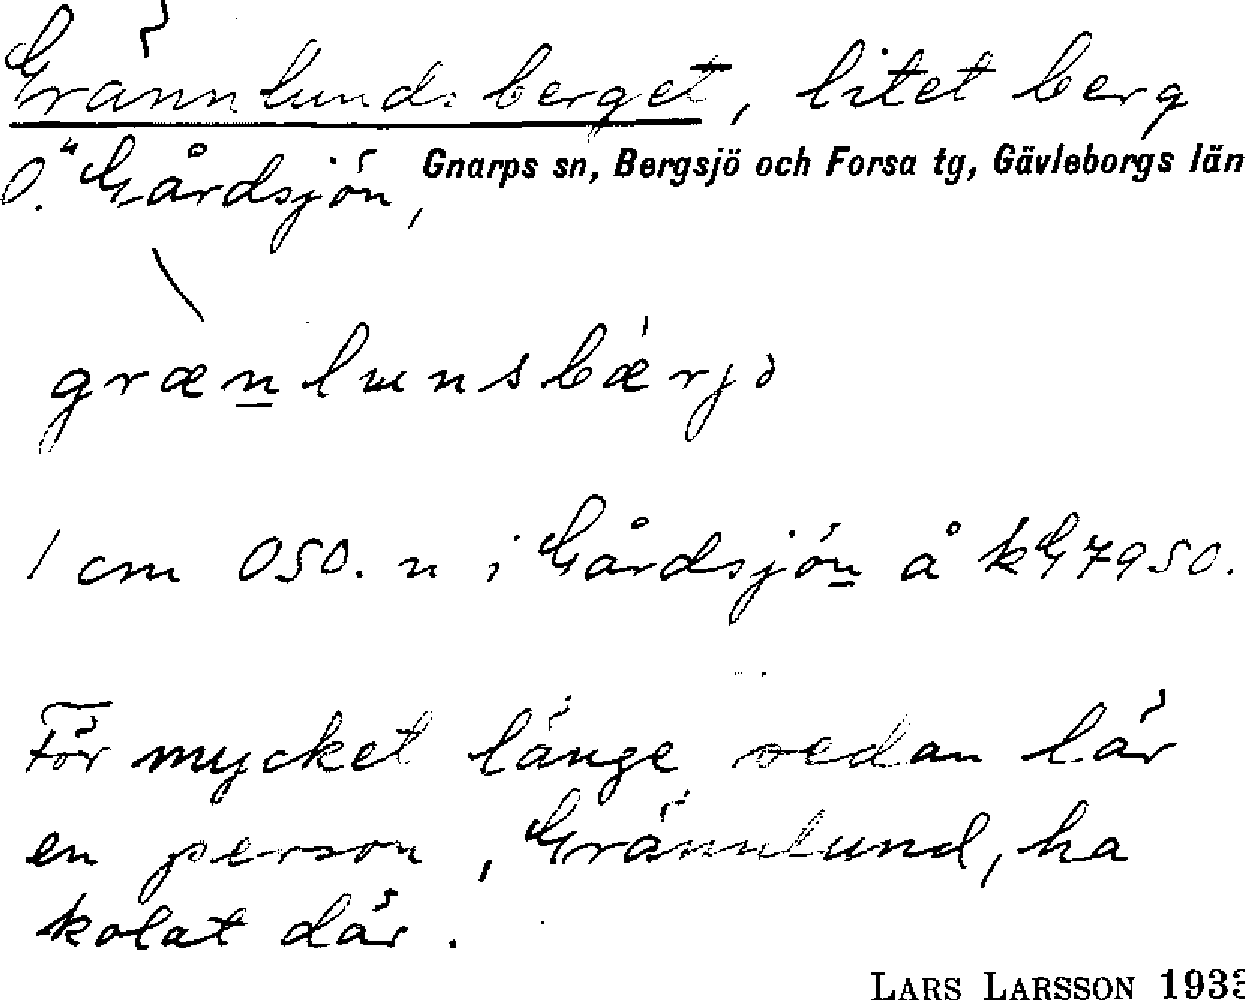 Grännlundsberget, litet berg
O. Gårdsjön, Gnarps sn, Bergsjö och Forsa tg, Gävleborgs län
grænlunsbærjə
1 cm OSO. n i Gårdsjön å kG7950.
För mycket länge sedan lär
en person, Grännlund, ha
kolat där.
LARS LARSSON 193